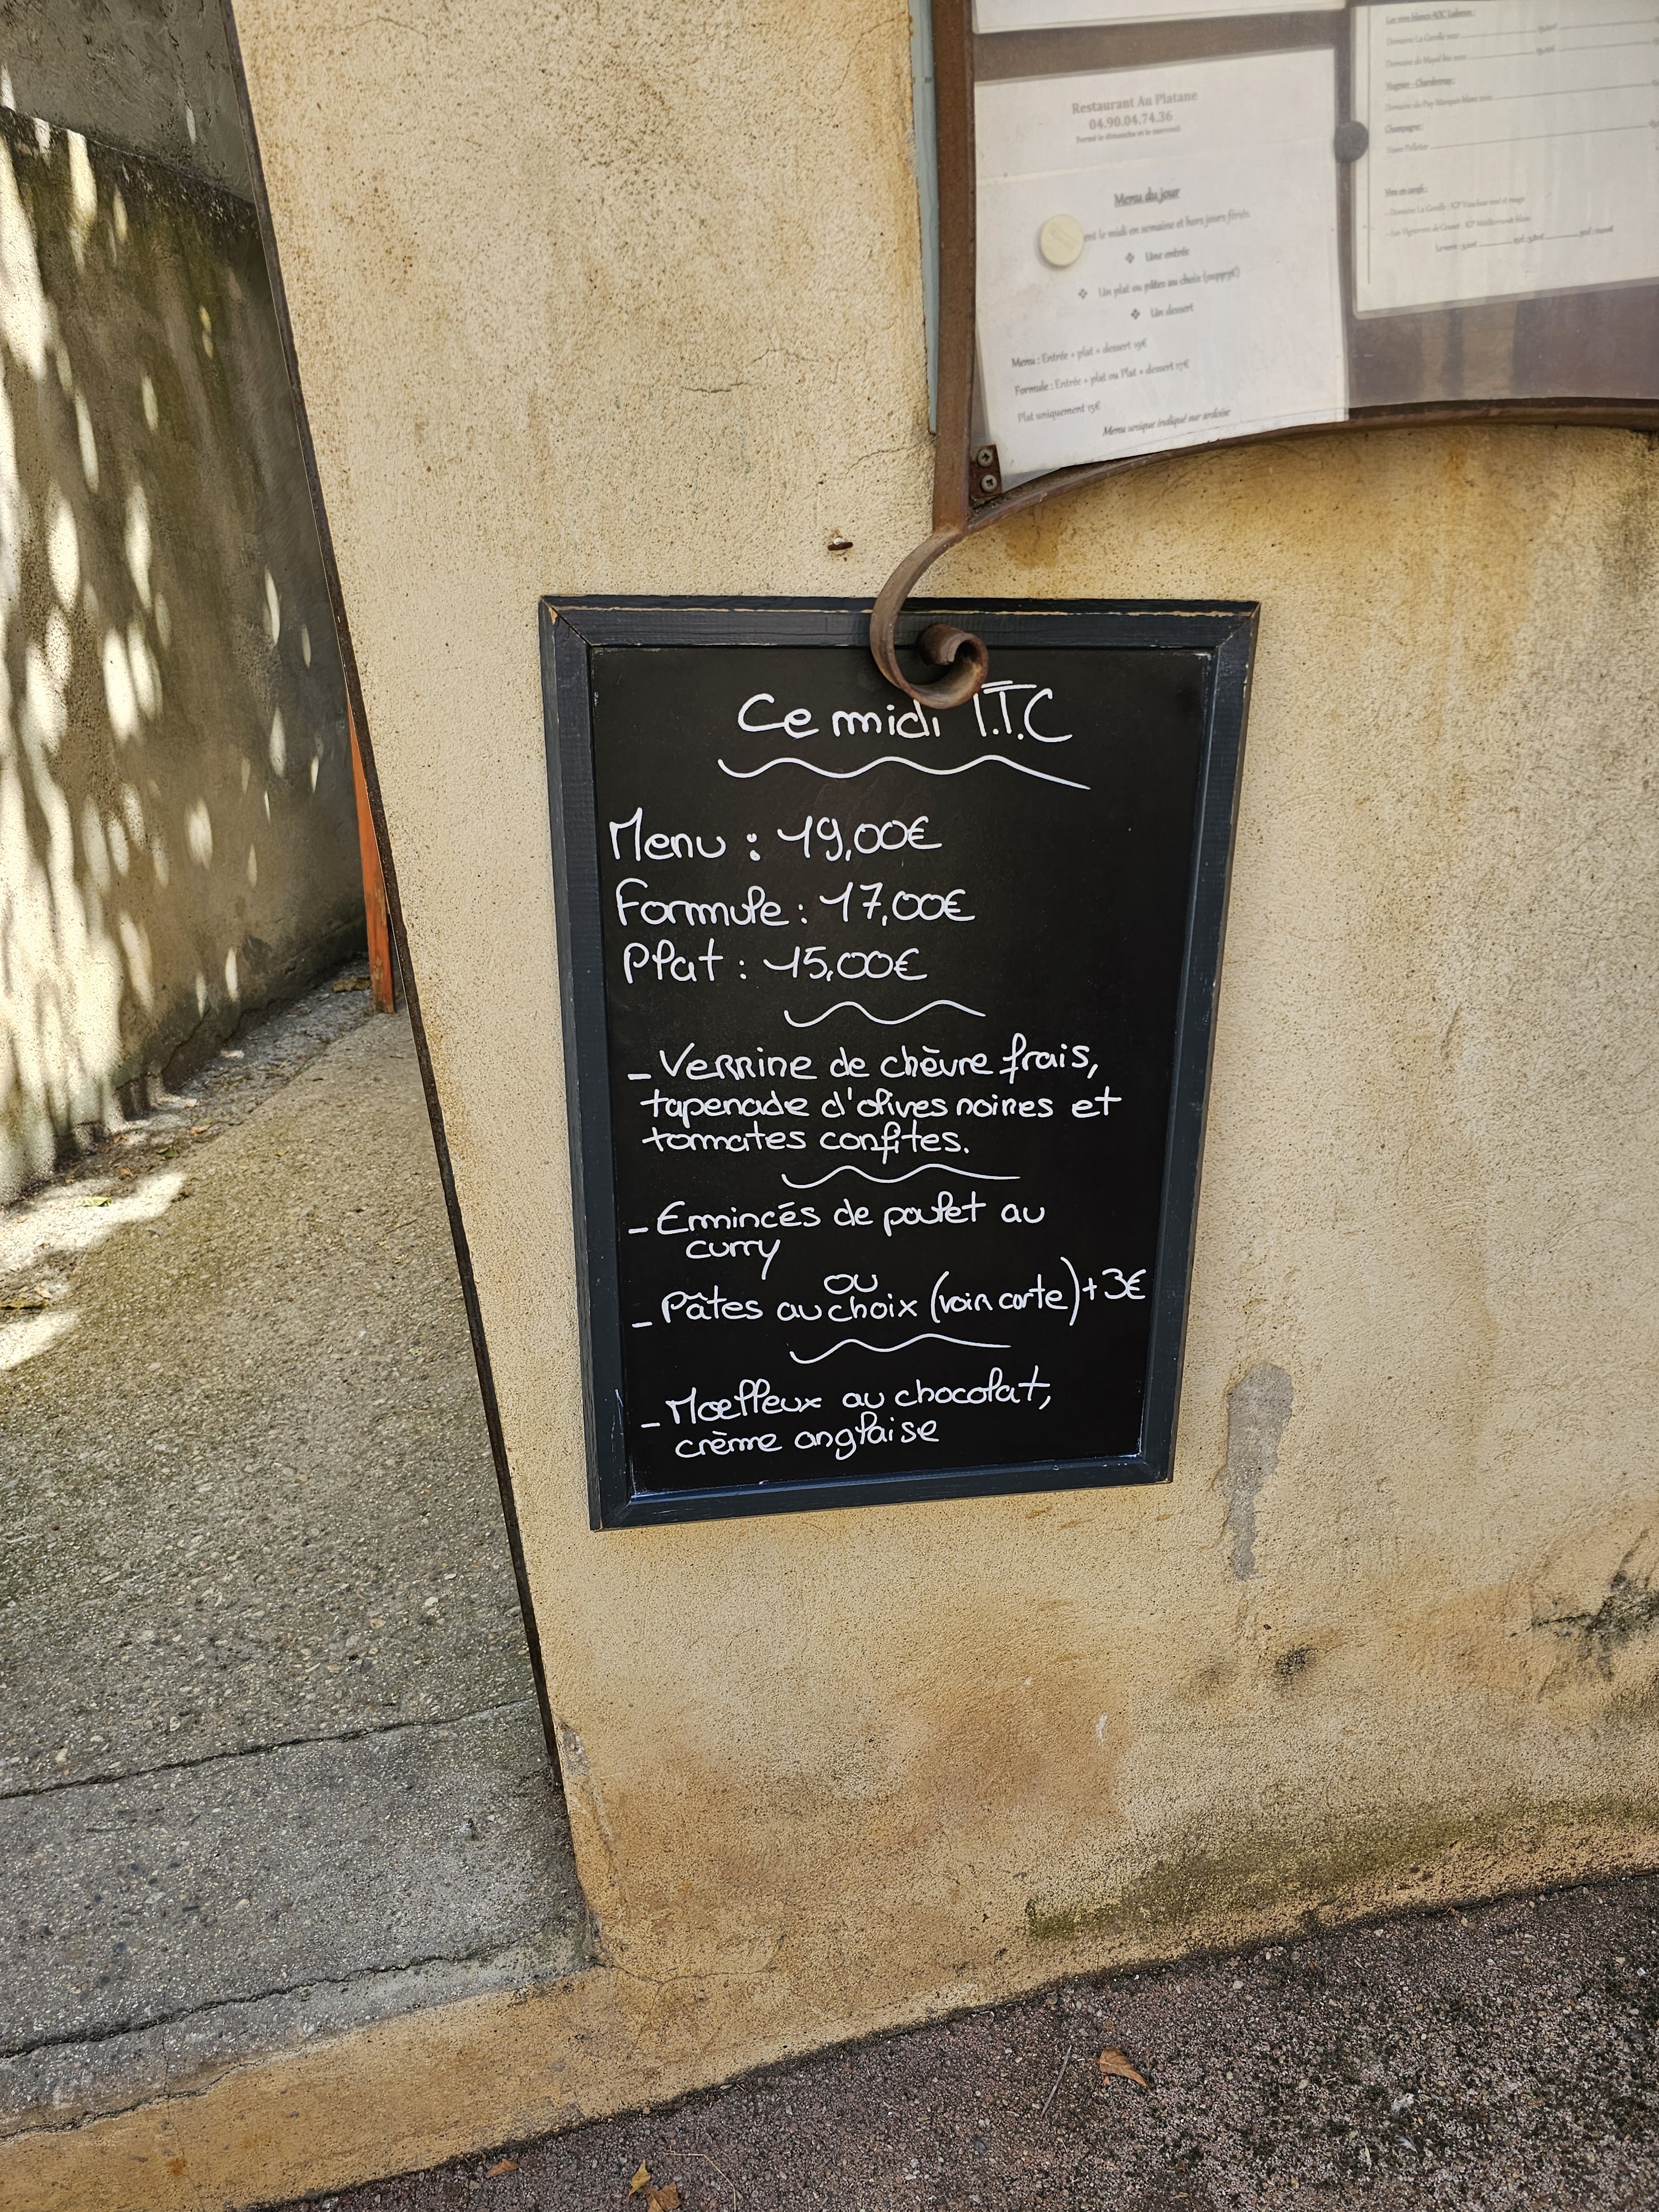 Restaurant Au Platane
04.90.04.74.36
Fermé le dimanche et le mercredi
Menu du jour
ent le midi en semaine et hors jours fériés
Une entrée
Un plat ou pâtes au choix
Un dessert
Menu : Entrée + plat + dessert 19€
Formule : Entrée + plat ou Plat + dessert 17€
Plat uniquement 15€
Menu unique indiqué sur ardoise
Les vins blancs AOC Luberon :
Domaine La Garelle
Domaine de Mayol bio
Viognier - Chardonnay :
Domaine du Puy Marquis blanc
Champagne :
Veuve Pelletier
Vins en
- Domaine La Garelle : IGP Vaucluse rosé et rouge
- Les Vignerons de : IGP Méditerranée blanc
Ce midi T.T.C
Menu : 19,00€
Formule : 17,00€
Plat : 15,00€
- Verrine de chèvre frais,
tapenade d'olives noires et
tomates confites.
- Emincés de poulet au
curry
ou
- Pâtes au choix (voir carte) +3€
- Moelleux au chocolat,
crème anglaise